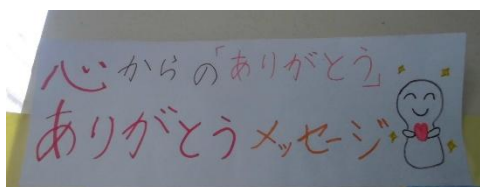 心からの「ありがとう」
ありがとうメッセージ